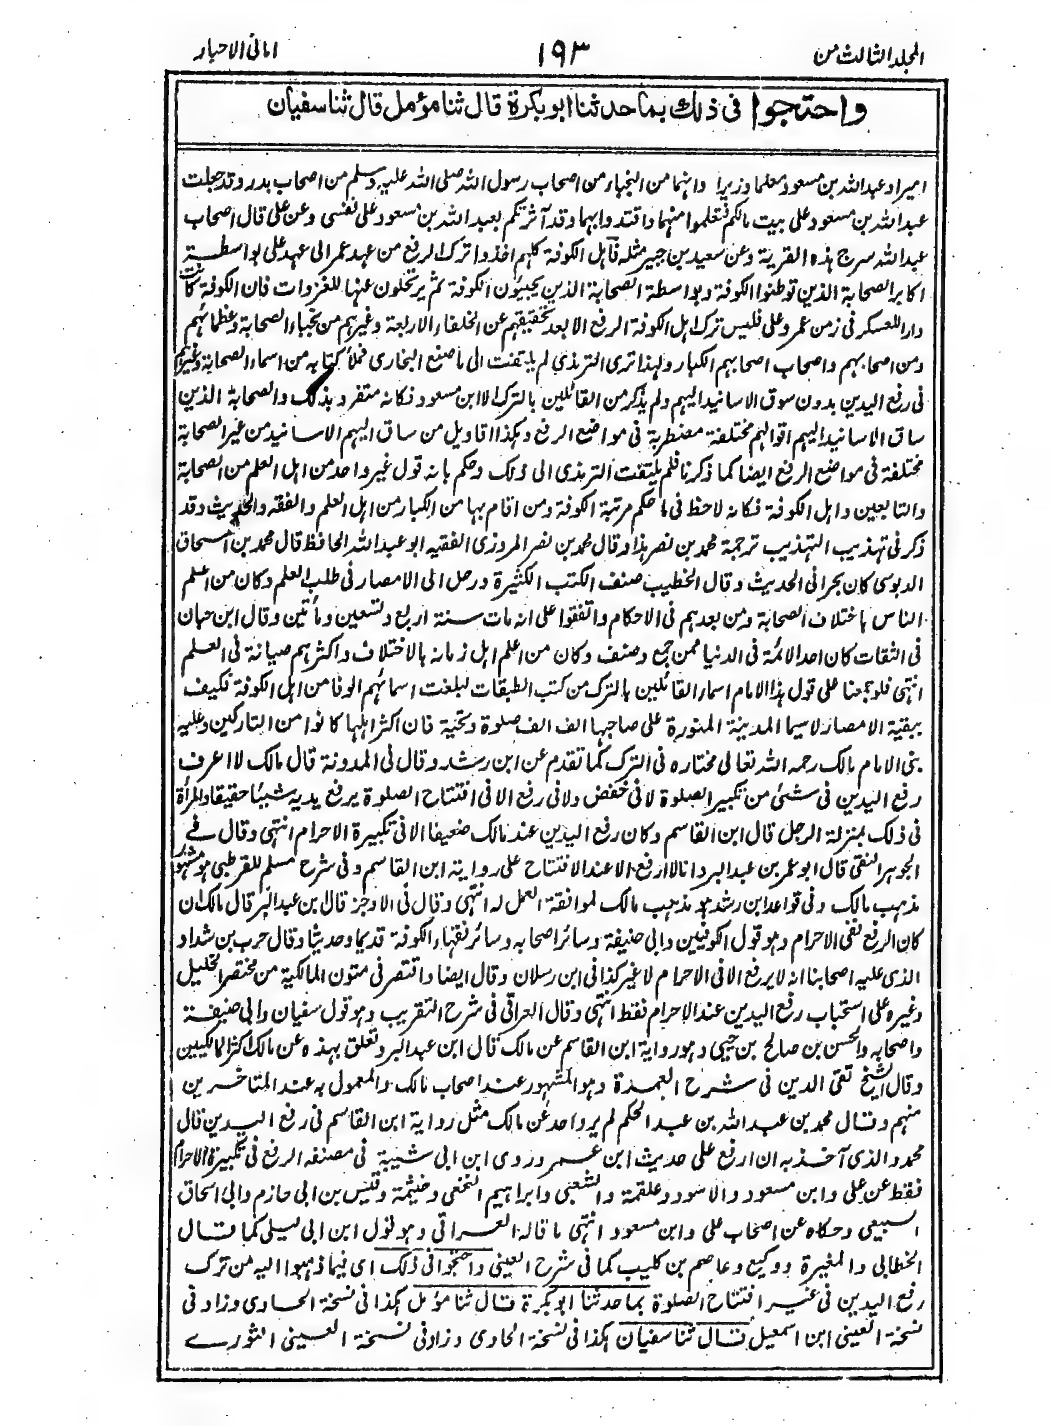 المجلد الثالث من ۱۹۳ امانی الاحبار
واحتجوا فی ذلك بما حدثنا ابو بکرة قال ثنا مؤمل قال ثنا سفیان
امیرا وعبد الله بن مسعود معلما ووزیرا وانهما من النجباء من اصحاب رسول الله صلی الله علیه وسلم من اصحاب بدر وقد جعلت
عبد الله بن مسعود علی بیت مالکم فتعلموا منهما واقتدوا بهما وقد آثرتکم بعبد الله بن مسعود علی نفسی وعن علی قال اصحاب
عبد الله سرج هذه القریة وعن سعید بن جبیر مثله فاهل الکوفة کلهم اخذوا ترك الرفع من عهد عمر الی عهد علی بواسطة
اکابر الصحابة الذین توطنوا الکوفة وبواسطة الصحابة الذین یجیئون الکوفة ثم یرتحلون عنها للغزوات فان الکوفة کانت
دارا للعسکر فی زمن عمر وعلی فلیس ترك اهل الکوفة الرفع الا بعد تحقیقهم عن الخلفاء الاربعة وغیرهم من نجباء الصحابة وعظمائهم
ومن اصحابهم واصحاب اصحابهم الکبار ولهذا تری الترمذی لم یلتفت الی ما صنع البخاری فملأ کتابه من اسماء الصحابة وغیرهم
فی رفع الیدین بدون سوق الاسانید الیهم ولم یذکر من القائلین بالترك الا ابن مسعود فکانه متفرد بذلك والصحابة الذین
ساق الاسانید الیهم اقوالهم مختلفة مضطربة فی مواضع الرفع وهکذا اقاویل من ساق الیهم الاسانید من غیر الصحابة
مختلفة فی مواضع الرفع ایضا کما ذکرنا فلم یلتفت الترمذی الی ذلك وحکم بانه قول غیر واحد من اهل العلم من الصحابة
والتابعین واهل الکوفة فکانه لاحظ فی ما حکم مرتبة الکوفة ومن اقام بها من الکبار من اهل العلم والفقه والحدیث وقد
ذکر فی تهذیب التهذیب ترجمة محمد بن نصر هذا وقال محمد بن نصر المروزی الفقیه ابو عبد الله الحافظ قال محمد بن اسحاق
الدبوسی کان بحرا فی الحدیث وقال الخطیب صنف الکتب الکثیرة ورحل الی الامصار فی طلب العلم وکان من اعلم
الناس باختلاف الصحابة ومن بعدهم فی الاحکام واتفقوا علی انه مات سنة اربع وتسعین ومأتین وقال ابن حبان
فی الثقات کان احد الائمة فی الدنیا ممن جمع وصنف وکان من اعلم اهل زمانه بالاختلاف واکثرهم صیانة فی العلم
انتهی فلو جمعنا علی قول هذا الامام اسماء القائلین بالترك من کتب الطبقات لبلغت اسمائهم الوفا من اهل الکوفة فکیف
ببقیة الامصار لا سیما المدینة المنورة علی صاحبها الف الف صلوة وتحیة فان اکثر اهلها کانوا من التارکین وعلیه
بنی الامام مالك رحمه الله تعالی مختاره فی الترك کما تقدم عن ابن رشد وقال فی المدونة قال مالك لا اعرف
رفع الیدین فی شئ من تکبیر الصلوة لا فی خفض ولا فی رفع الا فی افتتاح الصلوة یرفع یدیه شیئا خفیفا والمرأة
فی ذلك بمنزلة الرجل قال ابن القاسم وکان رفع الیدین عند مالك ضعیفا الا فی تکبیرة الاحرام انتهی وقال فی
الجوهر النقی قال ابو عمر بن عبد البر وانا لا ارفع الا عند الافتتاح علی روایة ابن القاسم وفی شرح مسلم للقرطبی هو مشهور
مذهب مالك وفی قواعد ابن رشد هو مذهب مالك لموافقة العمل له انتهی وقال فی الاوجز قال بن عبد البر قال مالك ان
کان الرفع ففی الاحرام وهو قول الکوفیین وابی حنیفة وسائر اصحابه وسائر فقهاء الکوفة قدیما وحدیثا وقال حرب بن شداد
الذی علیه اصحابنا انه لا یرفع الا فی الاحرام لا غیر کذا فی ابن رسلان وقال ایضا واقتصر فی متون المالکیة من مختصر الخلیل
وغیره علی استحباب رفع الیدین عند الاحرام فقط انتهی وقال العراقی فی شرح التقریب وهو قول سفیان وابی حنیفة
واصحابه والحسن بن صالح بن حیی وهو روایة ابن القاسم عن مالك قال ابن عبد البر وتعلق بهذه عن مالك اکثر المالکیین
وقال الشیخ تقی الدین فی شرح العمدة وهو المشهور عند اصحاب مالك والمعمول به عند المتاخرین
منهم وقال محمد بن عبد الله بن عبد الحکم لم یرو احد عن مالك مثل روایة ابن القاسم فی رفع الیدین قال
محمد والذی آخذ به ان ارفع علی حدیث ابن عمر وروی ابن ابی شیبة فی مصنفه الرفع فی تکبیرة الاحرام
فقط عن علی وابن مسعود والاسود وعلقمة والشعبی وابراهیم النخعی وخیثمة وقیس بن ابی حازم وابی اسحاق
السبیعی وحکاه عن اصحاب علی وابن مسعود انتهی ما قاله العراقی وهو قول ابن ابی لیلی کما قال
الخطابی والمغیرة ووکیع وعاصم بن کلیب کما فی شرح العینی واحتجوا فی ذلك ای فیما ذهبوا الیه من ترك
رفع الیدین فی غیر افتتاح الصلوة بما حدثنا ابو بکرة قال ثنا مؤمل هکذا فی نسخة الحاوی وزاد فی
نسخة العینی ابن اسمعیل قال ثنا سفیان هکذا فی نسخة الحاوی وزاد فی نسخة العینی الثوری